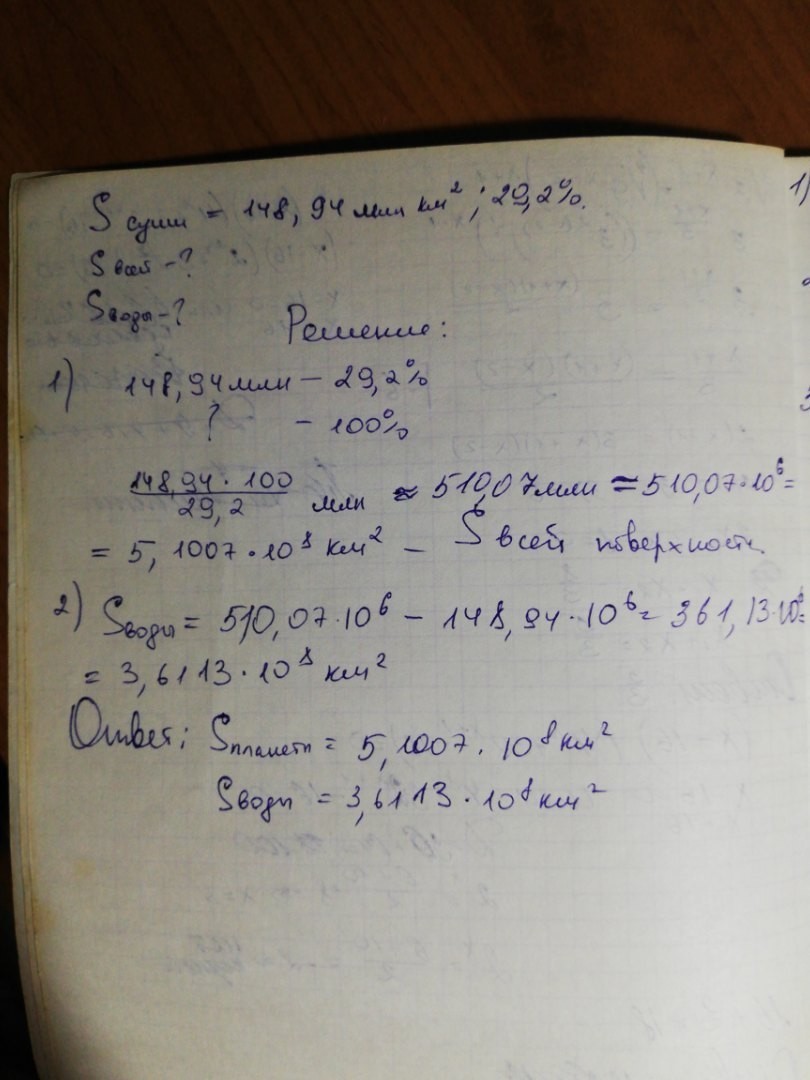 S суши = 148,94 млн км²; 29,2%.
S всей - ?
S воды - ?
Решение:
1) 148,94 млн – 29,2%
? – 100%
148,94 · 100 / 29,2 млн ≈ 510,07 млн = 510,07·10⁶ =
= 5,1007·10⁸ км² – S всей поверхности.
2) Sводы = 510,07·10⁶ – 148,94·10⁶ = 361,13·10⁶=
= 3,6113·10⁸ км²
Ответ: Sпланеты = 5,1007·10⁸ км²
Sводы = 3,6113·10⁸ км²
1)